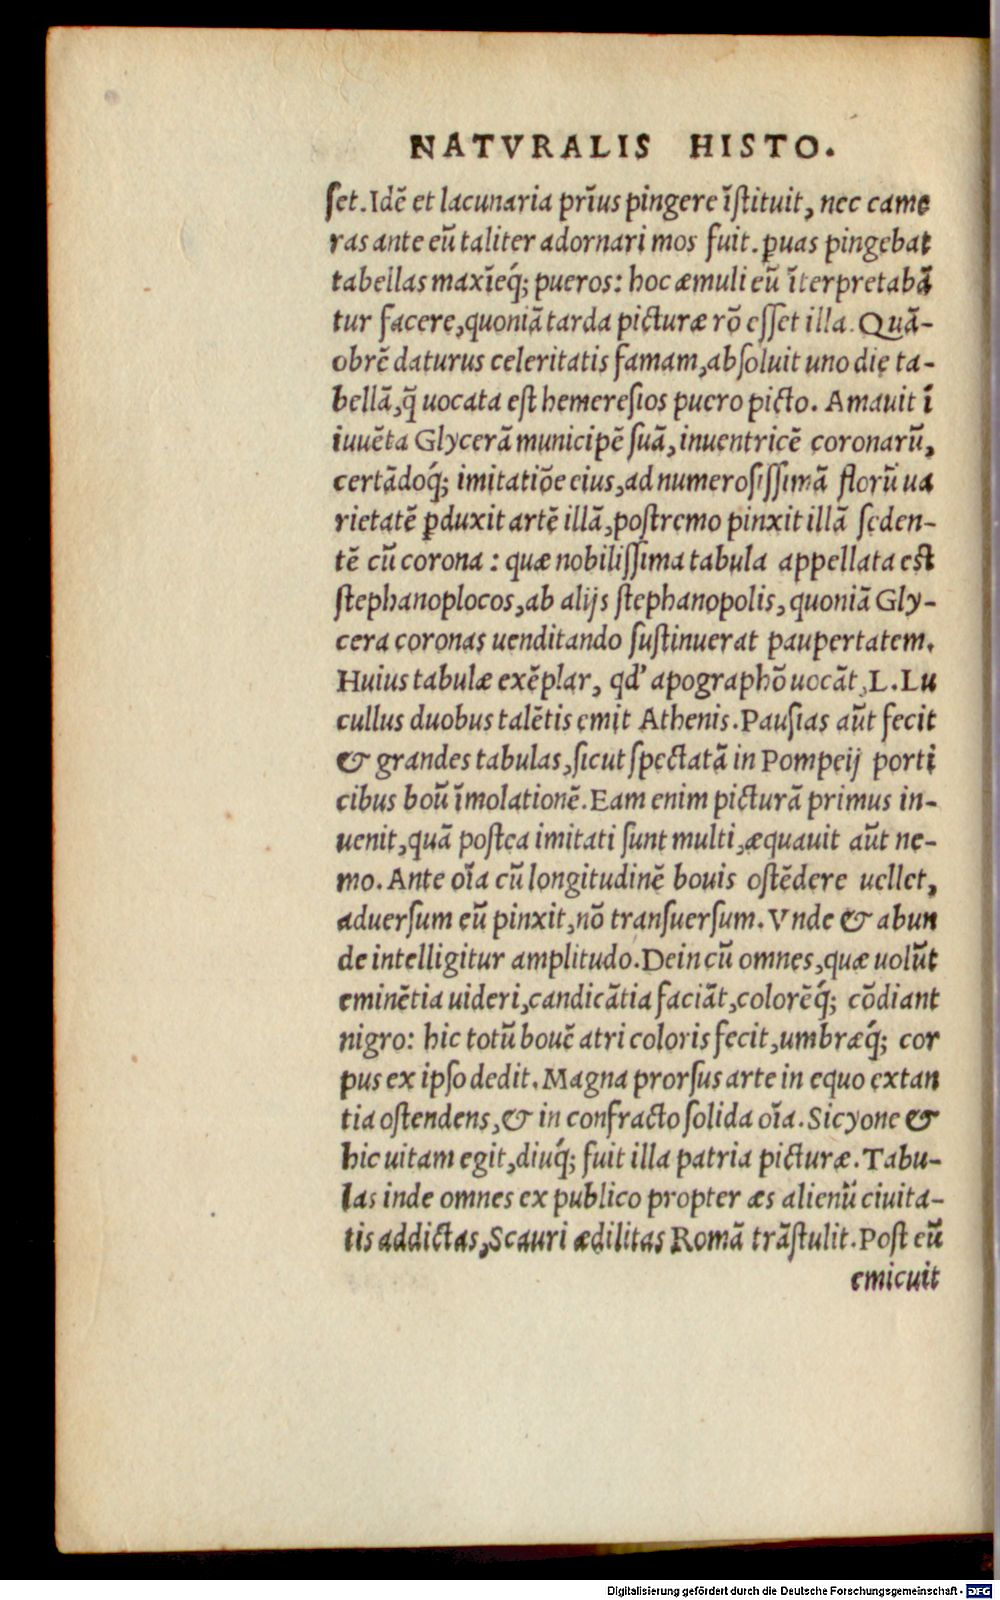 NATVRALIS HISTO.
ſet. Idē et lacunaria prīus pingere īſtituit, nec came
ras ante eū taliter adornari mos fuit. ꝑuas pingebat
tabellas maxīeq́; pueros: hoc æmuli eū īterpretabā
tur facere, quoniā tarda picturæ rō eſſet illa. Quā-
obrē daturus celeritatis famam, abſoluit uno die ta-
bellā, q̄ uocata eſt hemereſios puero picto. Amauit ī
iuuēta Glycerā municipē ſuā, inuentricē coronarū,
certādoq́; imitatiōe eius, ad numeroſiſſimā florū ua
rietatē ꝑduxit artē illā, poſtremo pinxit illā ſeden-
tē cū corona : quæ nobiliſſima tabula appellata eſt
ſtephanoplocos, ab alijs ſtephanopolis, quoniā Gly-
cera coronas uenditando ſuſtinuerat paupertatem.
Huius tabulæ exēplar, qd' apographō uocāt, L. Lu
cullus duobus talētis emit Athenis. Pauſias aūt fecit
& grandes tabulas, ſicut ſpectatā in Pompeij porti
cibus boū īmolationē. Eam enim picturā primus in-
uenit, quā poſtea imitati ſunt multi, æquauit aūt ne-
mo. Ante oīa cū longitudinē bouis oſtēdere uellet,
aduerſum eū pinxit, nō tranſuerſum. Vnde & abun
de intelligitur amplitudo. Dein cū omnes, quæ uolūt
eminētia uideri, candicātia faciāt, colorēq́; cōdiant
nigro: hic totū bouē atri coloris fecit, umbræq́; cor
pus ex ipſo dedit. Magna prorſus arte in equo extan
tia oſtendens, & in confracto ſolida oīa. Sicyone &
hic uitam egit, diuq́; fuit illa patria picturæ. Tabu-
las inde omnes ex publico propter æs alienū ciuita-
tis addictas, Scauri ædilitas Romā trāſtulit. Poſt eū
emicuit
Digitalisierung gefördert durch die Deutsche Forschungsgemeinschaft - DFG